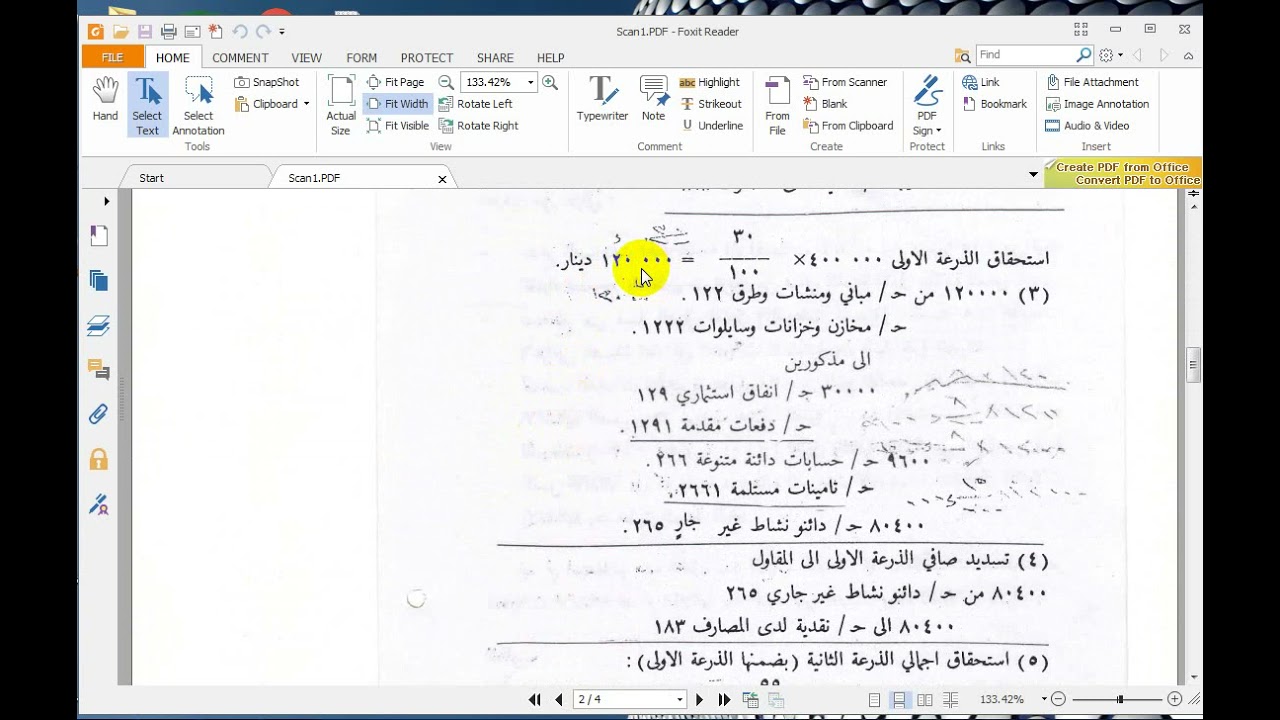 Scan1.PDF - Foxit Reader
FILE HOME COMMENT VIEW FORM PROTECT SHARE HELP
Find
Hand
Select Text
Select Annotation
SnapShot
Clipboard
Tools
Actual Size
Fit Page
Fit Width
Fit Visible
133.42%
Rotate Left
Rotate Right
View
Typewriter
Note
Highlight
Strikeout
Underline
Comment
From File
From Scanner
Blank
From Clipboard
Create
PDF Sign
Protect
Link
Bookmark
Links
File Attachment
Image Annotation
Audio & Video
Insert
Start
Scan1.PDF
Create PDF from Office
Convert PDF to Office
٣٠
استحقاق الذرعة الاولى ٤٠٠ ٠٠٠ × ــــــ = ١٢٠ ٠٠٠ دينار.
١٠٠
(٣) ١٢٠٠٠٠ من حـ / مباني ومنشات وطرق ١٢٢ .
حـ / مخازن وخزانات وسايلوات ١٢٢٢ .
الى مذكورين
٣٠٠٠٠ حـ / انفاق استثماري ١٢٩
حـ / دفعات مقدمة ١٢٩١ .
٩٦٠٠ حـ / حسابات دائنة متنوعة ٢٦٦ .
حـ / تامينات مستلمة ٢٦٦١ .
٨٠٤٠٠ حـ / دائنو نشاط غير جارٍ ٢٦٥ .
(٤) تسديد صافي الذرعة الاولى الى المقاول
٨٠٤٠٠ من حـ / دائنو نشاط غير جاري ٢٦٥
٨٠٤٠٠ الى حـ / نقدية لدى المصارف ١٨٣
(٥) استحقاق اجمالي الذرعة الثانية (بضمنها الذرعة الاولى) :
2 / 4
133.42%